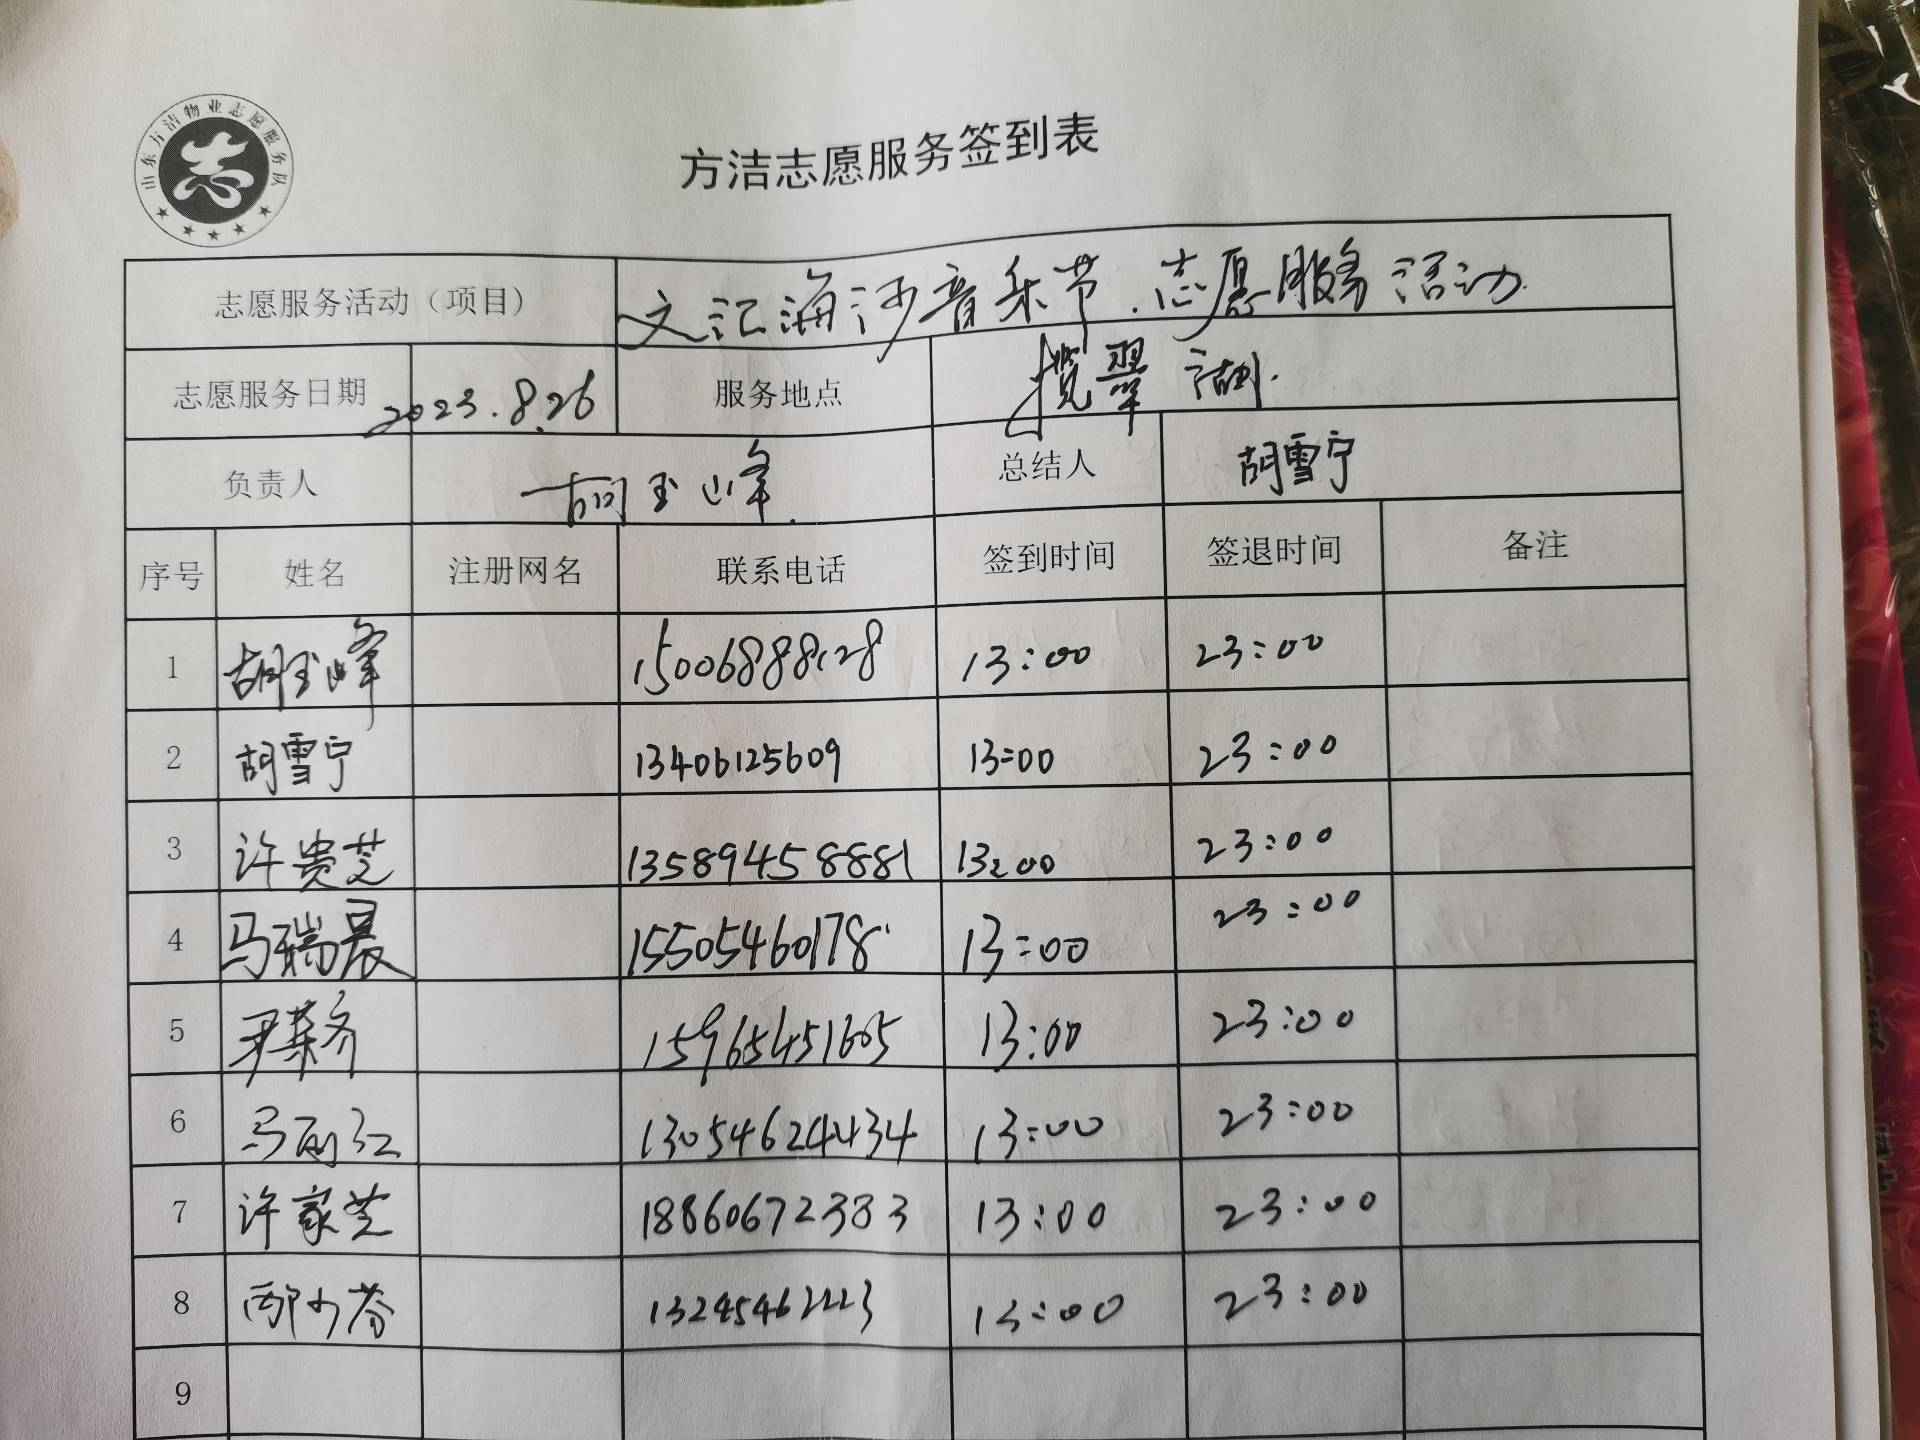 山东方洁物业志愿服务队
志
方洁志愿服务签到表
志愿服务活动（项目） 文汇海河音乐节.志愿服务活动.
志愿服务日期 2023.8.26 服务地点 揽翠湖.
负责人 胡玉峰. 总结人 胡雪宁
序号 姓名 注册网名 联系电话 签到时间 签退时间 备注
1 胡玉峰 15006888128 13:00 23:00
2 胡雪宁 13406125609 13:00 23:00
3 许贵芝 13589458881 13:00 23:00
4 马瑞晨 15505460178 13:00 23:00
5 尹荣齐 15965451605 13:00 23:00
6 马丽红 13054624434 13:00 23:00
7 许家芝 18860672383 13:00 23:00
8 13:00 23:00
9